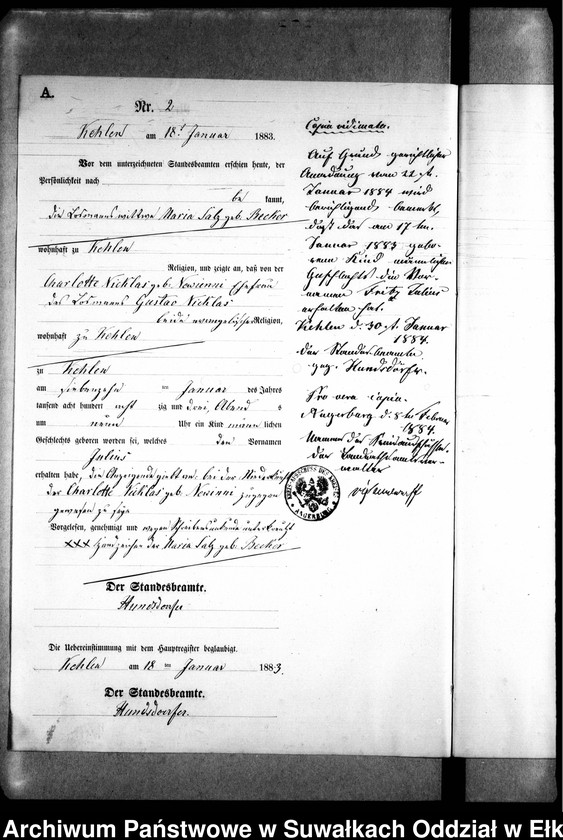 A.
Nr. 2
Kehlen am 18t Januar 1883.
Vor dem unterzeichneten Standesbeamten erschien heute, der
Persönlichkeit nach
be kannt,
die Losmannswittwe Maria Salz geb. Becker
wohnhaft zu Kehlen
Religion, und zeigte an, daß von der
Charlotte Nicklas geb. Nowinni Ehefrau
des Losmanns Gustav Nicklas
beide evangelischer Religion,
wohnhaft zu Kehlen
zu Kehlen
am siebenzehn ten Januar des Jahres
tausend acht hundert acht zig und drei, Abend s
um neun Uhr ein Kind männ lichen
Geschlechts geboren worden sei, welches den Vornamen
Julius
erhalten habe, die Anzeigende giebt an bei der Niederkunft
der Charlotte Nicklas geb. Nowinni zugegen
gewesen zu sein
Vorgelesen, genehmigt und wegen Schreibensunkunde unterkreuzt
XXX Handzeichen der Maria Salz geb. Becker
Der Standesbeamte.
Hundsdorfer
Die Uebereinstimmung mit dem Hauptregister beglaubigt.
Kehlen am 18 ten Januar 1883.
Der Standesbeamte.
Hundsdorfer.
Copia vidimata.
Auf Grund gerichtlicher
Anordnung vom 22 st.
Januar 1884 wird
berichtigend bemerkt,
daß das am 17 ten
Januar 1883 gebo-
rene Kind männlichen
Geschlechts die Vor-
namen Fritz Julius
erhalten hat.
Kehlen d. 30 st. Januar
1884.
Der Standesbeamte
gez. Hundsdorfer.
Pro vera copia.
Angerburg d. 8 ten Februar
1884.
Namens des Kreisausschusses.
Der Landrathsamtsver-
walter
KREIS-AUSSCHUSS DES KREISES
ANGERBURG
Archiwum Państwowe w Suwałkach Oddział w Ełku